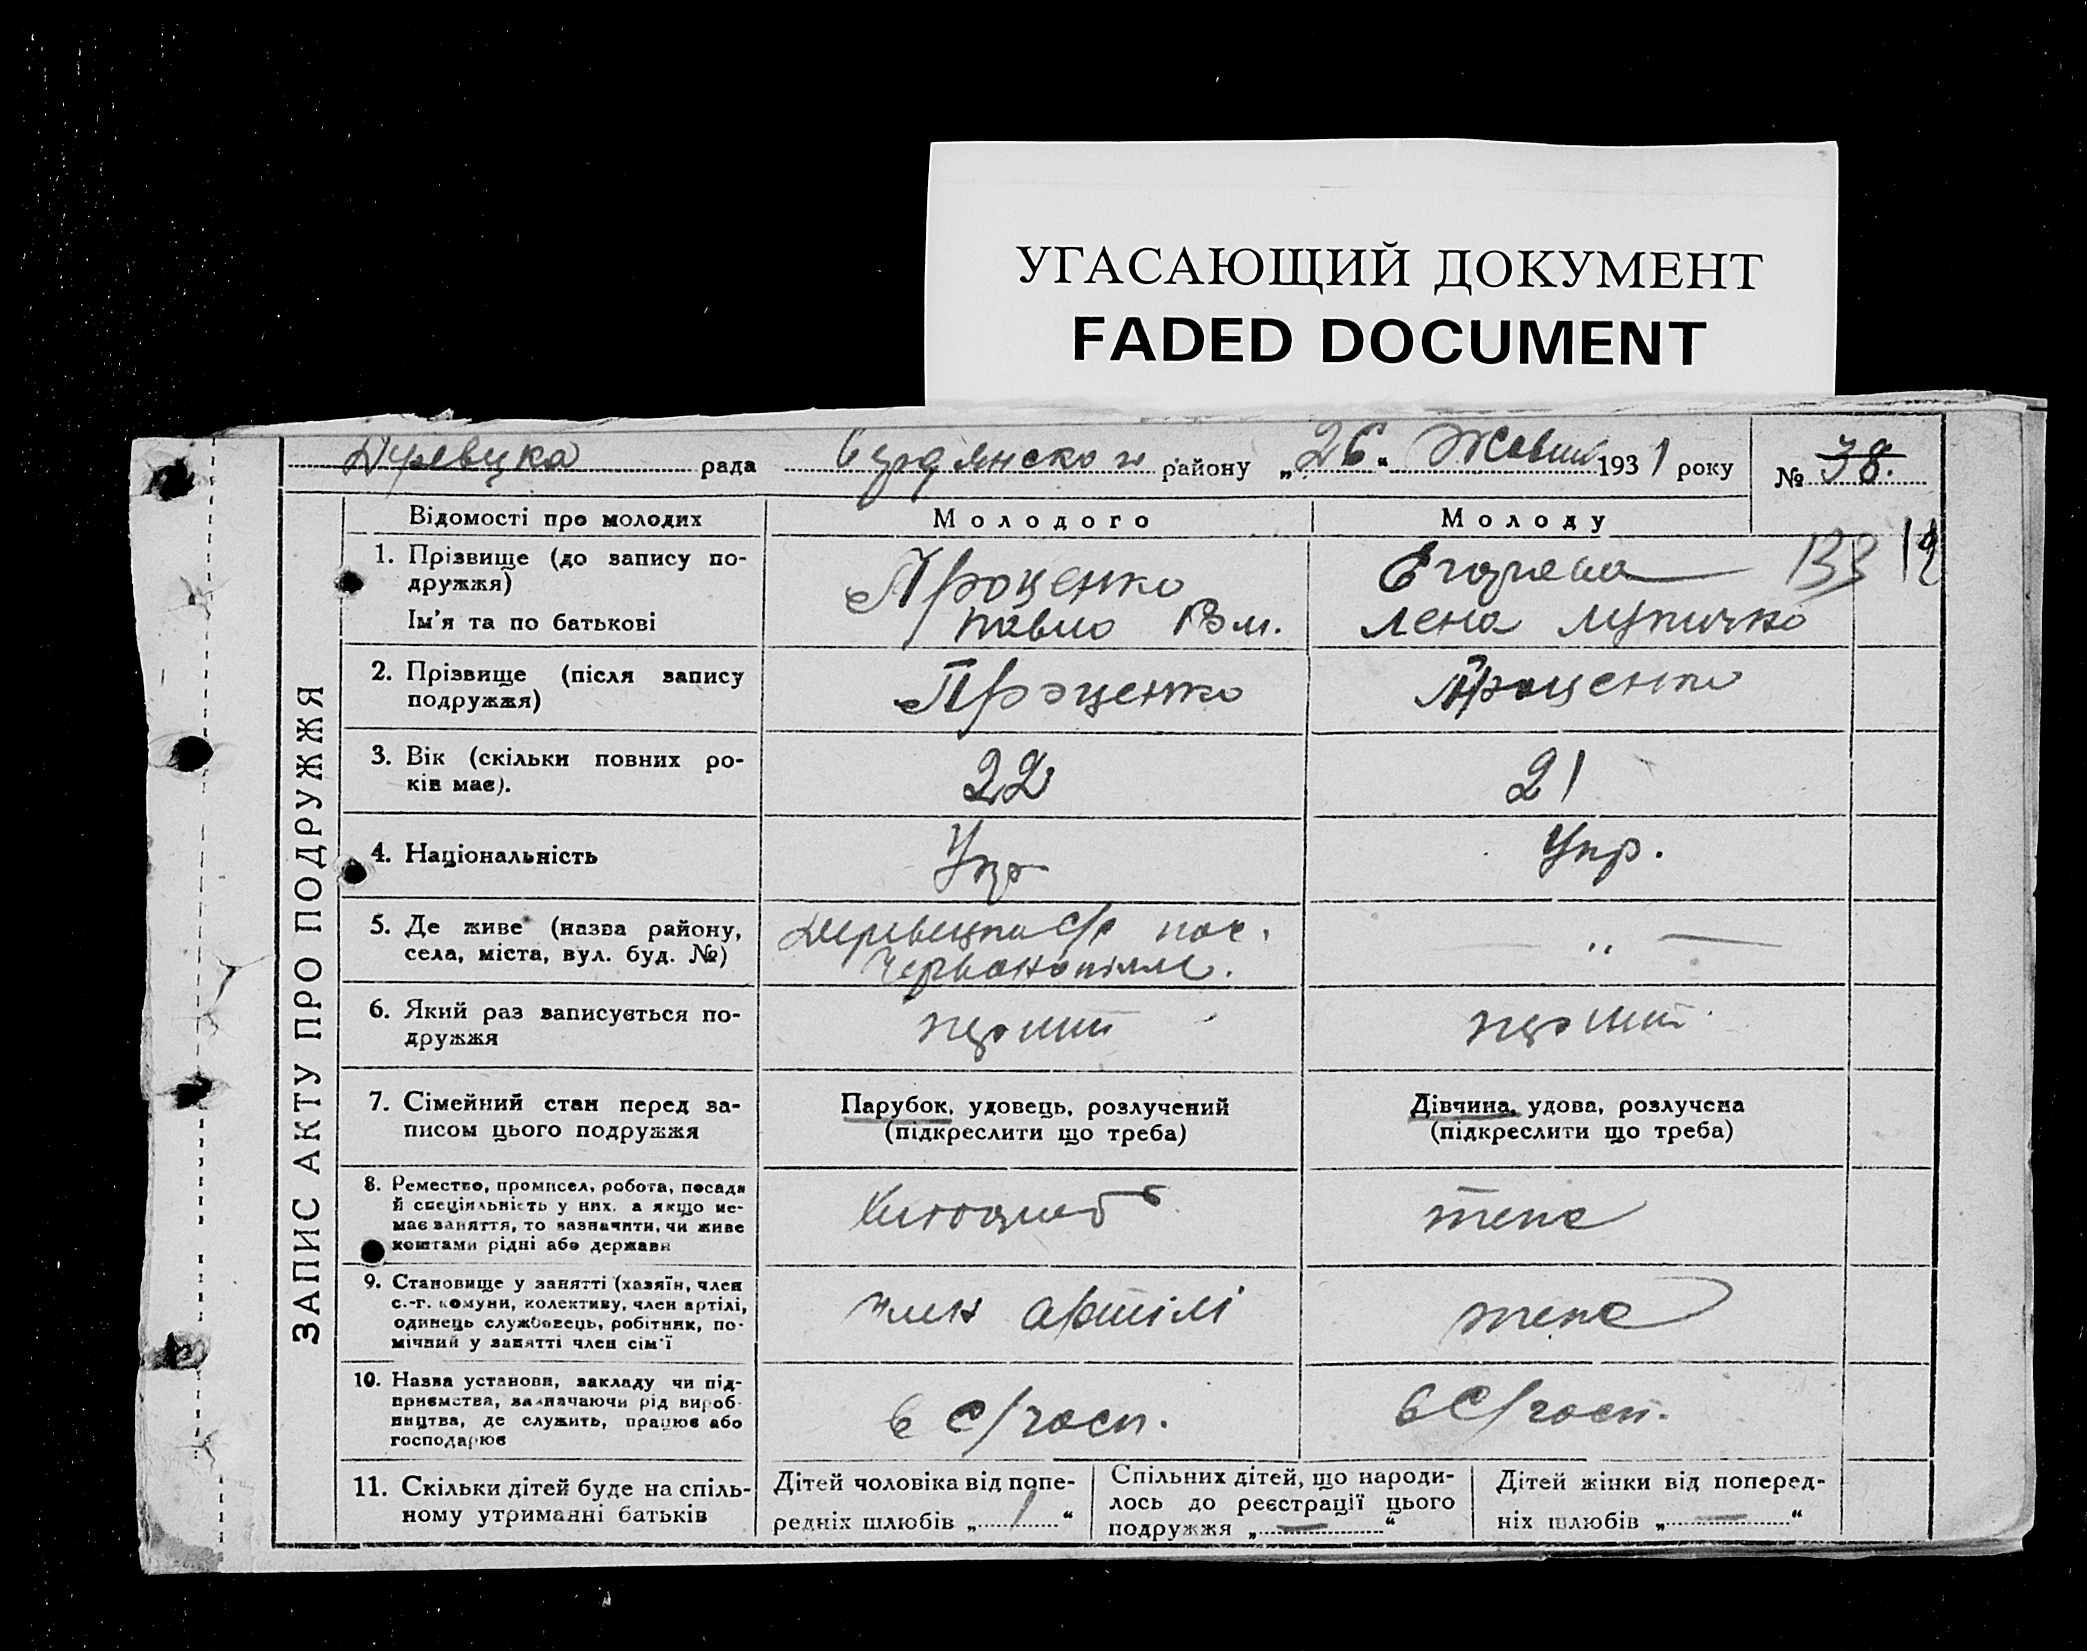 УГАСАЮЩИЙ ДОКУМЕНТ
FADED DOCUMENT
рада району „26“ 1931 року
№ 38.
ЗАПИС АКТУ ПРО ПОДРУЖЖЯ
Відомості про молодих Молодого Молоду
133
1. Прізвище (до запису по-
дружжя)
Проценко
Ім'я та по батькові
Павло Вм.
Лена
2. Прізвище (після запису
подружжя)
Проценко Проценко
3. Вік (скільки повних ро-
ків має).
22 21
4. Національність
Укр Укр.
5. Де живе (назва району,
села, міста, вул. буд. №)
с/р пос. „
Червонопілля.
6. Який раз записується по-
дружжя
перший перший
7. Сімейний стан перед за-
писом цього подружжя
Парубок, удовець, розлучений
(підкреслити що треба)
Дівчина, удова, розлучена
(підкреслити що треба)
8. Ремество, промисел, робота, посада
й спеціяльність у них, а якщо не-
має заняття, то зазначити, чи живе
коштами рідні або держави
теж
9. Становище у занятті (хазяїн, член
с.-г. комуни, колективу, член артілі,
одинець службовець, робітник, по-
мічний у занятті член сім'ї
член артілі
теж
10. Назва установи, закладу чи під-
приємства, зазначаючи рід вироб-
ництва, де служить, працює або
господарює
в с/госп. в с/госп.
11. Скільки дітей буде на спіль-
ному утриманні батьків
Дітей чоловіка від попе-
редніх шлюбів „ “
Спільних дітей, що народи-
лось до реєстрації цього
подружжя „—“
Дітей жінки від поперед-
ніх шлюбів „—“